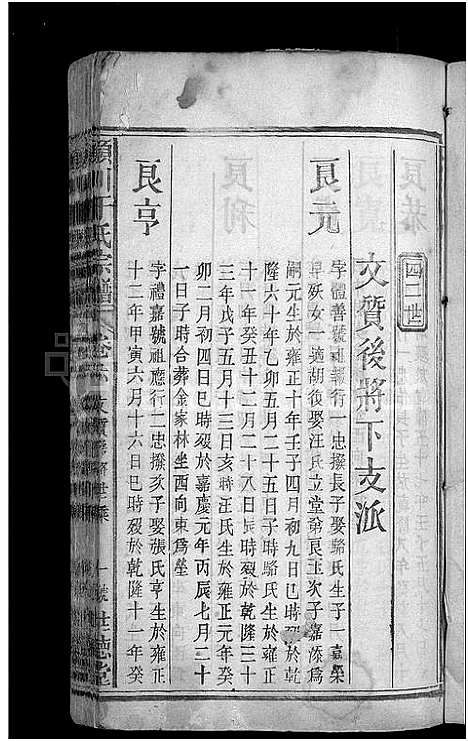 四二世
文質後將下支派
良元
字體善號祖報行一忠撰長子娶駱氏生子一嘉榮
早殀女一適胡後娶汪氏立堂弟良玉次子嘉添爲
嗣元生於雍正十年壬子四月初九日巳時歿於乾
隆六十年乙卯五月二十五日子時駱氏生於雍正
十一年癸丑十二月二十八日辰時歿於乾隆三十
三年戊子五月十三日亥時汪氏生於雍正元年癸
卯二月初四日巳時歿於嘉慶元年丙辰七月二十
一日子時合葬金家林坐西向東爲塋
良亨
字禮嘉號祖應行二忠撰次子娶張氏亨生於雍正
十二年甲寅六月十六日巳時歿於乾隆十一年癸
潁川于氏宗譜 卷 文質 世系
一 世德堂